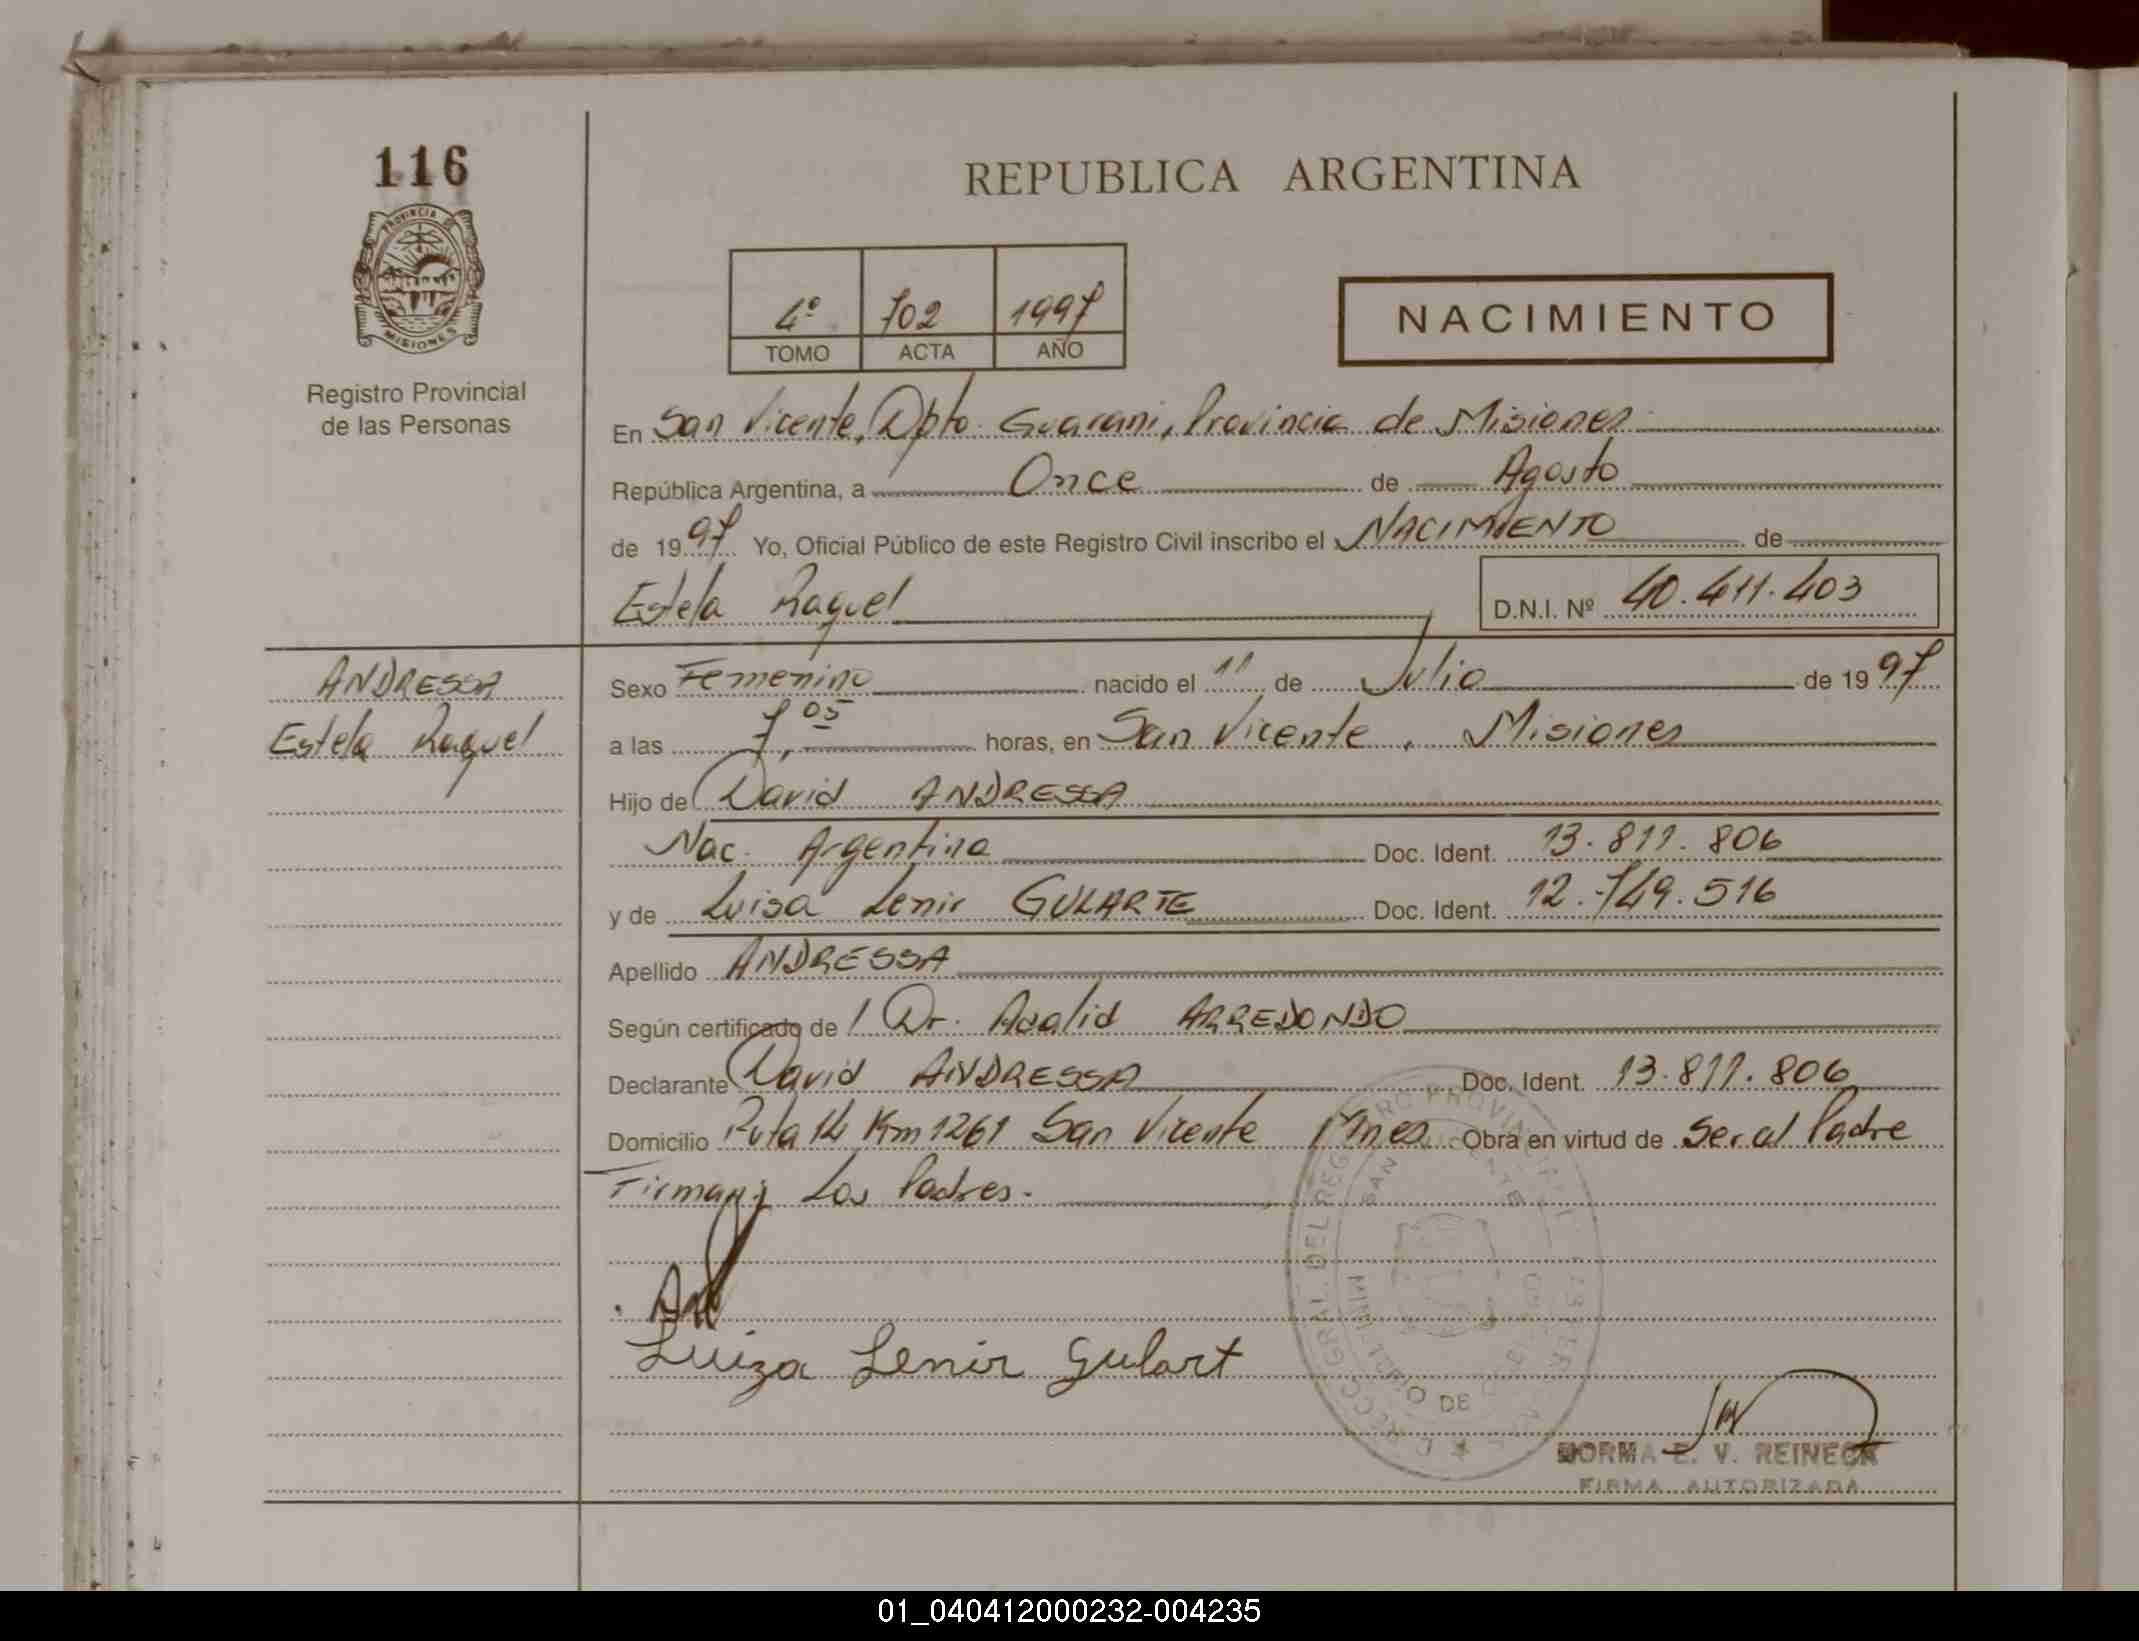 116
PROVINCIA DE
MISIONES
Registro Provincial
de las Personas
REPUBLICA ARGENTINA
4º 702 1997
TOMO ACTA AÑO
NACIMIENTO
En San Vicente, Dpto. Guarani, Provincia de Misiones
República Argentina, a Once de Agosto
de 1997 Yo, Oficial Público de este Registro Civil inscribo el NACIMIENTO de
Estela Raquel D.N.I. Nº 40.411.403
ANDRESSA
Estela Raquel
Sexo Femenino nacido el 11 de Julio de 1997
a las 7,05 horas, en San Vicente, Misiones
Hijo de David ANDRESSA
Nac. Argentina Doc. Ident. 13.811.806
y de Luisa Lenir GULARTE Doc. Ident. 12.749.516
Apellido ANDRESSA
Según certificado de Dr. ARREDONDO
Declarante David ANDRESSA Doc. Ident. 13.811.806
Domicilio Ruta 14 Km 1261 San Vicente Mnes Obra en virtud de Ser al Padre
Firman Los Padres.
Luiza Lenir Gulart
NORMA E. V. REINECK
FIRMA AUTORIZADA
01_040412000232-004235